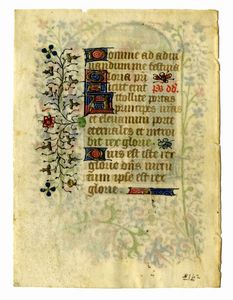 Domine ad adiu
uandum me festina
Gloria pri
sicut erat
Attollite portas
principes vras
et eleuamini porte
eternales et introi
bit rex glorie.
Quis est iste rex
glorie dns
tum ipse est rex
glorie.